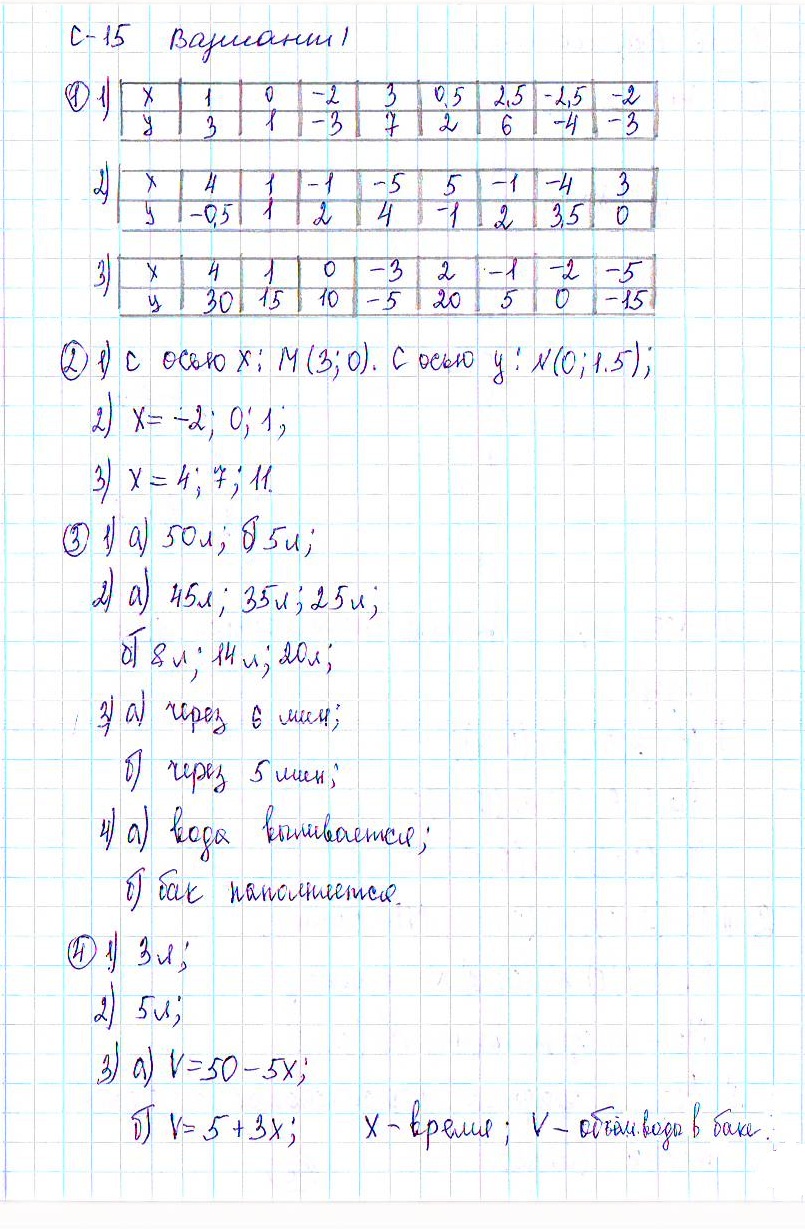 С-15 Вариант 1
① 1) x 1 0 -2 3 0,5 2,5 -2,5 -2
y 3 1 -3 7 2 6 -4 -3
2) x 4 1 -1 -5 5 -1 -4 3
y -0,5 1 2 4 -1 2 3,5 0
3) x 4 1 0 -3 2 -1 -2 -5
y 30 15 10 -5 20 5 0 -15
② 1) с осью x: M(3; 0). С осью y: N(0; 1.5);
2) x = -2; 0; 1;
3) x = 4; 7; 11.
③ 1) а) 50л; б) 5л;
2) а) 45л; 35л; 25л;
б) 8л; 14л; 20л;
3) а) через 6 мин;
б) через 5 мин;
4) а) вода выливается;
б) бак наполняется.
④ 1) 3л;
2) 5л;
3) а) V=50-5x;
б) V=5+3x; x - время; V - объём воды в баке.